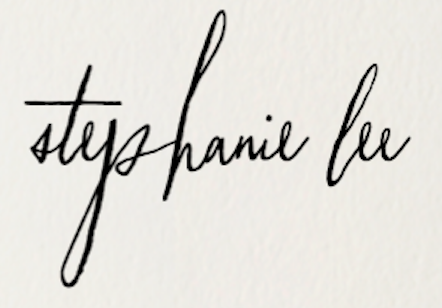 stephanie lee